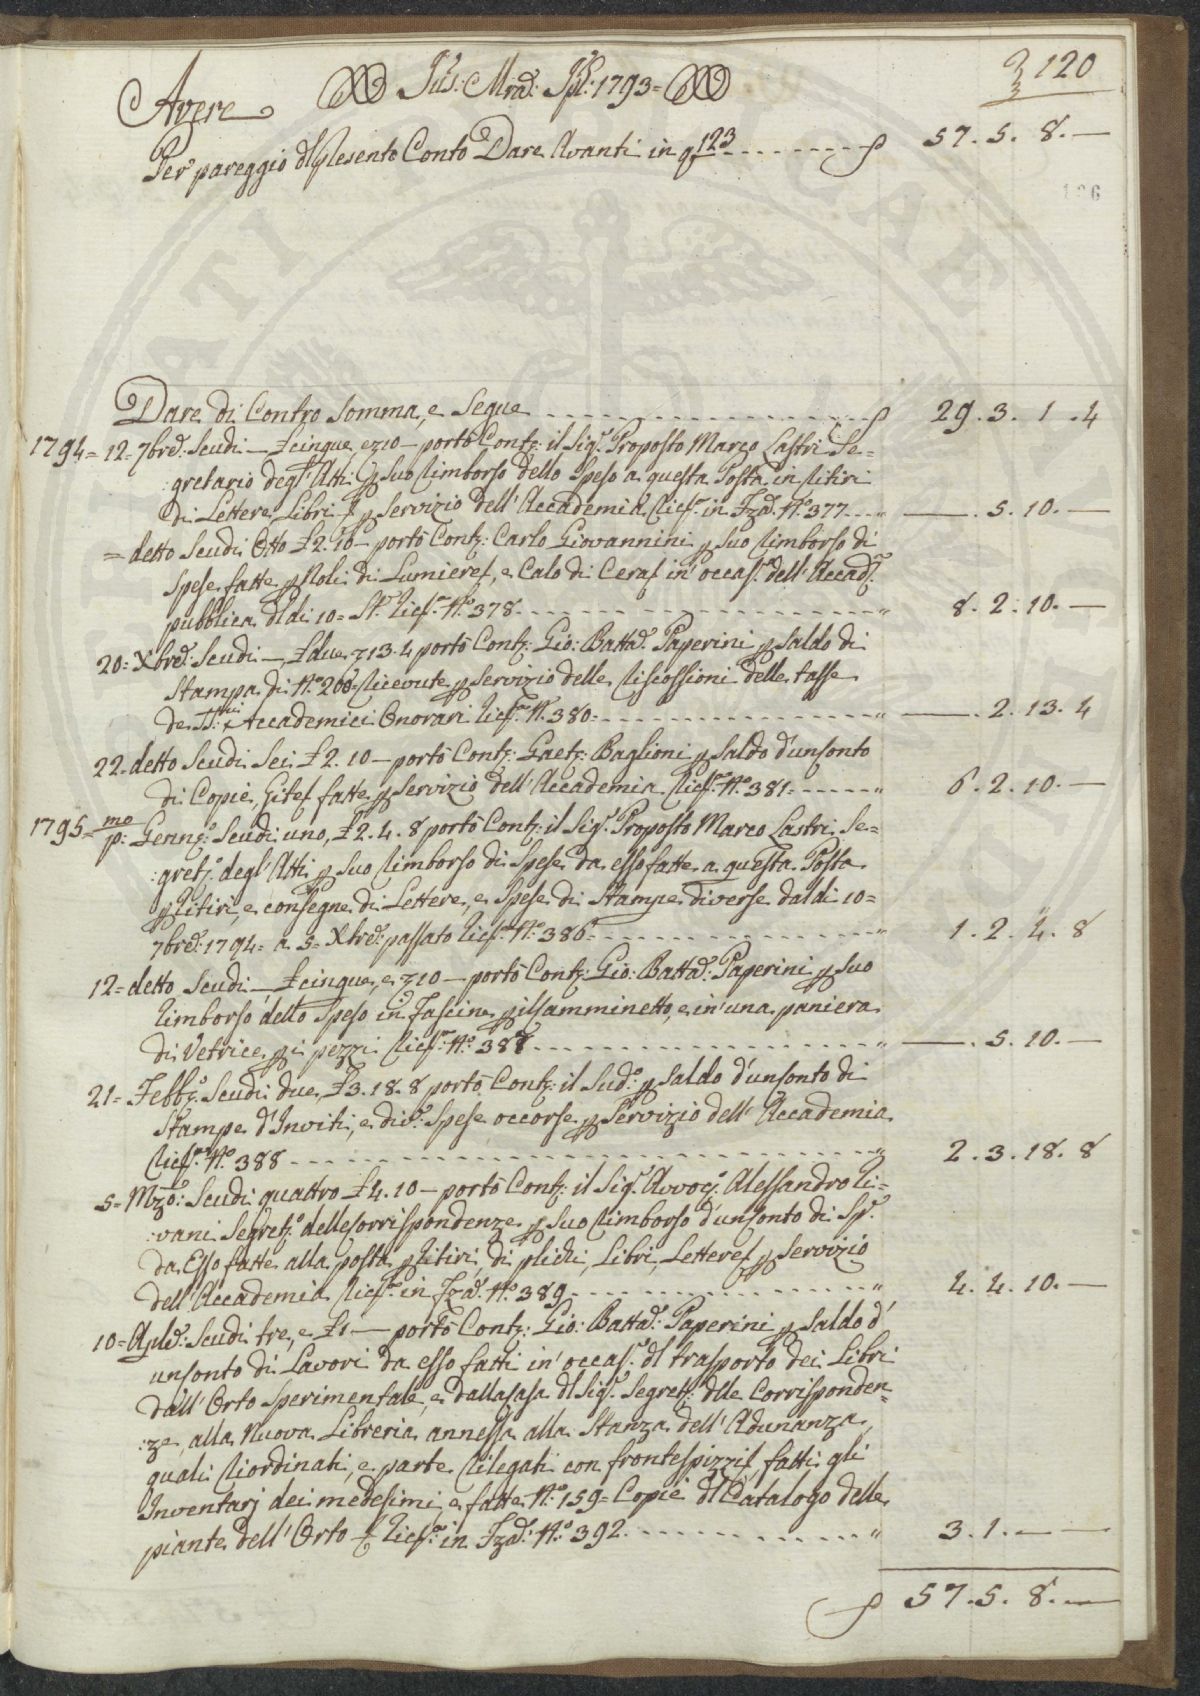 120
Jus: Mrad: Spl: 1793=
Avere
Per pareggio dl presente Conto Dare Avanti in q 123 57. 5. 8. —
126
Dare di Contro Somma, e Segue 29. 3. 1. 4
1794= 12= 7bre: Scudi — £ cinque, e 10 — portò Cont: il Sig.r Proposto Marco Lastri Se=
:gretario degl'Atti p suo rimborso dello speso a questa Posta in ritiri
di Lettere, Libri p servizio dell'Accademia Ricf: in Fza N.o 377 — . 5. 10. —
= detto Scudi Otto £ 2. 10 — portò Cont: Carlo Giovannini p suo rimborso di
Spese fatte p Noli di Lumiere, e Calo di Cera in occas: dell'Accad:
pubblica dl dì 10= St.e Ricf: N.o 378 8. 2. 10. —
20= Xbre: Scudi —, £ due 13. 4 portò Cont: Gio: Batta: Paperini p saldo di
Stampa di N.o 200= ricevute p servizio delle riscossioni delle tasse
de SS:ri Accademici Onorari Ricf: N.o 380= — . 2. 13. 4
22= detto Scudi Sei £ 2. 10 — portò Cont: Gaet: Baglioni p saldo d'un Conto
di Copie, Gite fatte p servizio dell'Accademia Ricf: N.o 381= 6. 2. 10. —
1795= p:mo Genn:o Scudi uno, £ 2. 4. 8 portò Cont: il Sig.r Proposto Marco Lastri Se=
:gret:o degl'Atti p suo rimborso di Spese da esso fatte a questa Posta
p ritiri, e consegne di Lettere, e Spese di Stampe diverse dal dì 10=
7bre: 1794= a 5= Xbre: passato Ricf: N.o 386= 1. 2. 4. 8
12= detto Scudi — £ cinque, e 10 — portò Cont: Gio: Batta: Paperini p suo
rimborso dello Speso in Fascine p il Camminetto, e in una paniera
di Vetrice p i pezzi Ricf: N.o 387 — . 5. 10. —
21= Febb:o Scudi due, £ 3. 18. 8 portò Cont: il Sud:o p saldo d'un Conto di
Stampe d'Inviti, e div:e Spese occorse p Servizio dell'Accademia
Ricf: N.o 388 2. 3. 18. 8
5= Mzo: Scudi quattro £ 4. 10 — portò Cont: il Sig.r Avvoc:o Alessandro Ri=
:vani Segret:o delle Corrispondenze p suo rimborso d'un Conto di Sp.e
da Esso fatte alla posta p ritiri, di plichi, Libri, Lettere p servizio
dell'Accademia Ricf: in Fza: N.o 389 4. 4. 10. —
10= Aple: Scudi tre, e £ 1 — portò Cont: Gio: Batta: Paperini p saldo d'
un Conto di Lavori da esso fatti in occas: dl trasporto dei Libri
dall'Orto Sperimentale, e dalla Casa dl Sig.r Segret: dlle Corrisponden=
:ze, alla Nuova Libreria annessa alla Stanza dell'Adunanza,
quali Riordinati, e parte Rilegati con frontespizzi, fatti gli
Inventarj dei medesimi, e fatte N.o 159= Copie dl Catalogo delle
piante dell'Orto Ricf: in Fza: N.o 392 3. 1. — —
57. 5. 8. —